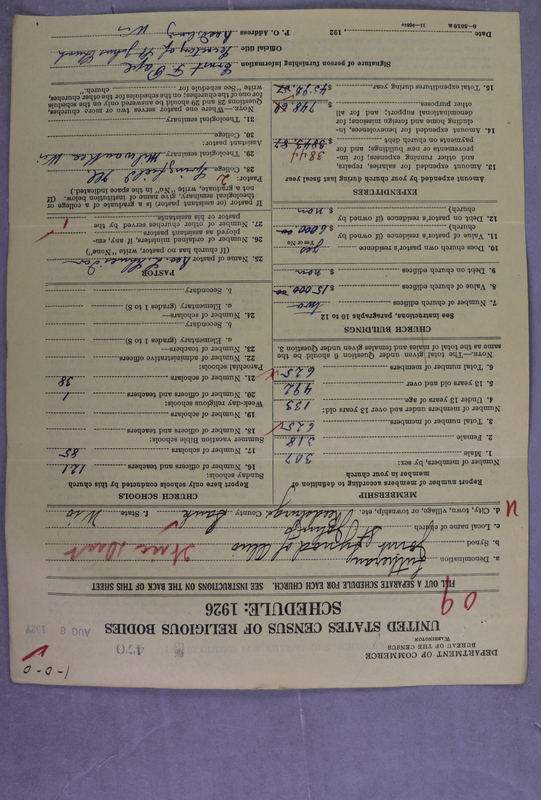 1-0-0
DEPARTMENT OF COMMERCE
BUREAU OF THE CENSUS
WASHINGTON
470
AUG 6 1927
UNITED STATES CENSUS OF RELIGIOUS BODIES
SCHEDULE: 1926
09
FILL OUT A SEPARATE SCHEDULE FOR EACH CHURCH. SEE INSTRUCTIONS ON THE BACK OF THIS SHEET
a. Denomination Lutheran
b. Synod Joint Synod of Ohio
c. Local name of church St Johns
d. City, town, village, or township, etc. Reedsburg County Sauk f. State Wis
MEMBERSHIP
Number of member according to definition of member in your church
Number of members, by sex:
1. Male 307
2. Female 318
3. Total number of members. 625
Number of members under and over 13 years old:
4. Under 13 years of age. 133
5. 13 years old and over 492
6. Total number of members. 625
NOTE.—The total given under Question 6 should be the same as the total of males and females given under Question 3.
CHURCH BUILDINGS
See instructions, paragraphs 10 to 12
7. Number of church edifices two
8. Value of church edifices $ 15.000.00
9. Debt on church edifices $ non
10. Does church own pastor's residence yes
(Yes or No)
11. Value of pastor's residence (if owned by church) $ 6.000.00
12. Debt on pastor's residence (if owned by church) $ non
EXPENDITURES
Amount expended by your church during last fiscal year
13. Amount expended for salaries, repairs, and other running expenses; for improvements or new buildings; and for payments on church debt 3844
$ 3843.87
14. Amount expended for benevolences, including home and foreign missions; for denominational support; and for all other purposes. $ 748.
15. Total expenditures during year. $
CHURCH SCHOOLS
Report here only schools conducted by this church
Sunday schools:
16. Number of officers and teachers 121
17. Number of scholars 85
Summer vacation Bible schools:
18. Number of officers and teachers
19. Number of scholars
Week-day religious schools:
20. Number of officers and teachers 1
21. Number of scholars 38
Parochial schools:
22. Number of administrative officers
23. Number of teachers—
a. Elementary (grades 1 to 8)
b. Secondary
24. Number of scholars—
a. Elementary (grades 1 to 8)
b. Secondary
PASTOR
25. Name of pastor
(If church has no pastor, write "None")
26. Number of ordained ministers, if any, employed as assistant pastors 1
27. Number of other churches served by the pastor or his assistants.
If pastor or assistant pastor is a graduate of a college or theological seminary, give name of institution below. (If not a graduate, write "No" in the space indicated.)
Pastor:
28. College. Springfield Ill
29. Theological seminary Milwaukee Wis
Assistant pastor:
30. College.
31. Theological seminary.
NOTE.—Where one pastor serves two or more churches, Questions 28 and 29 should be answered only on the schedule for one of the churches; on the schedules for the other churches, write "See schedule for church."
Signature of person furnishing information Ernst F
Official title Secretary of St Johns Church
P. O. Address Reedsburg Wis
Date , 192